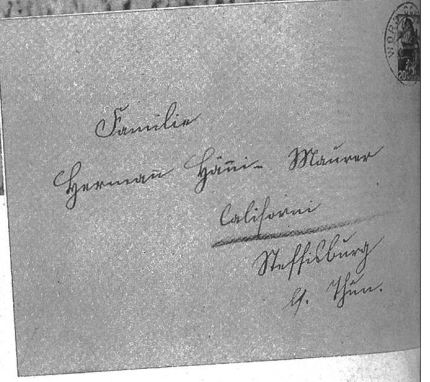 Familie
Hermañ Häñi- Maurer
Californi
Steffisburg
b/. Thun.
WOR